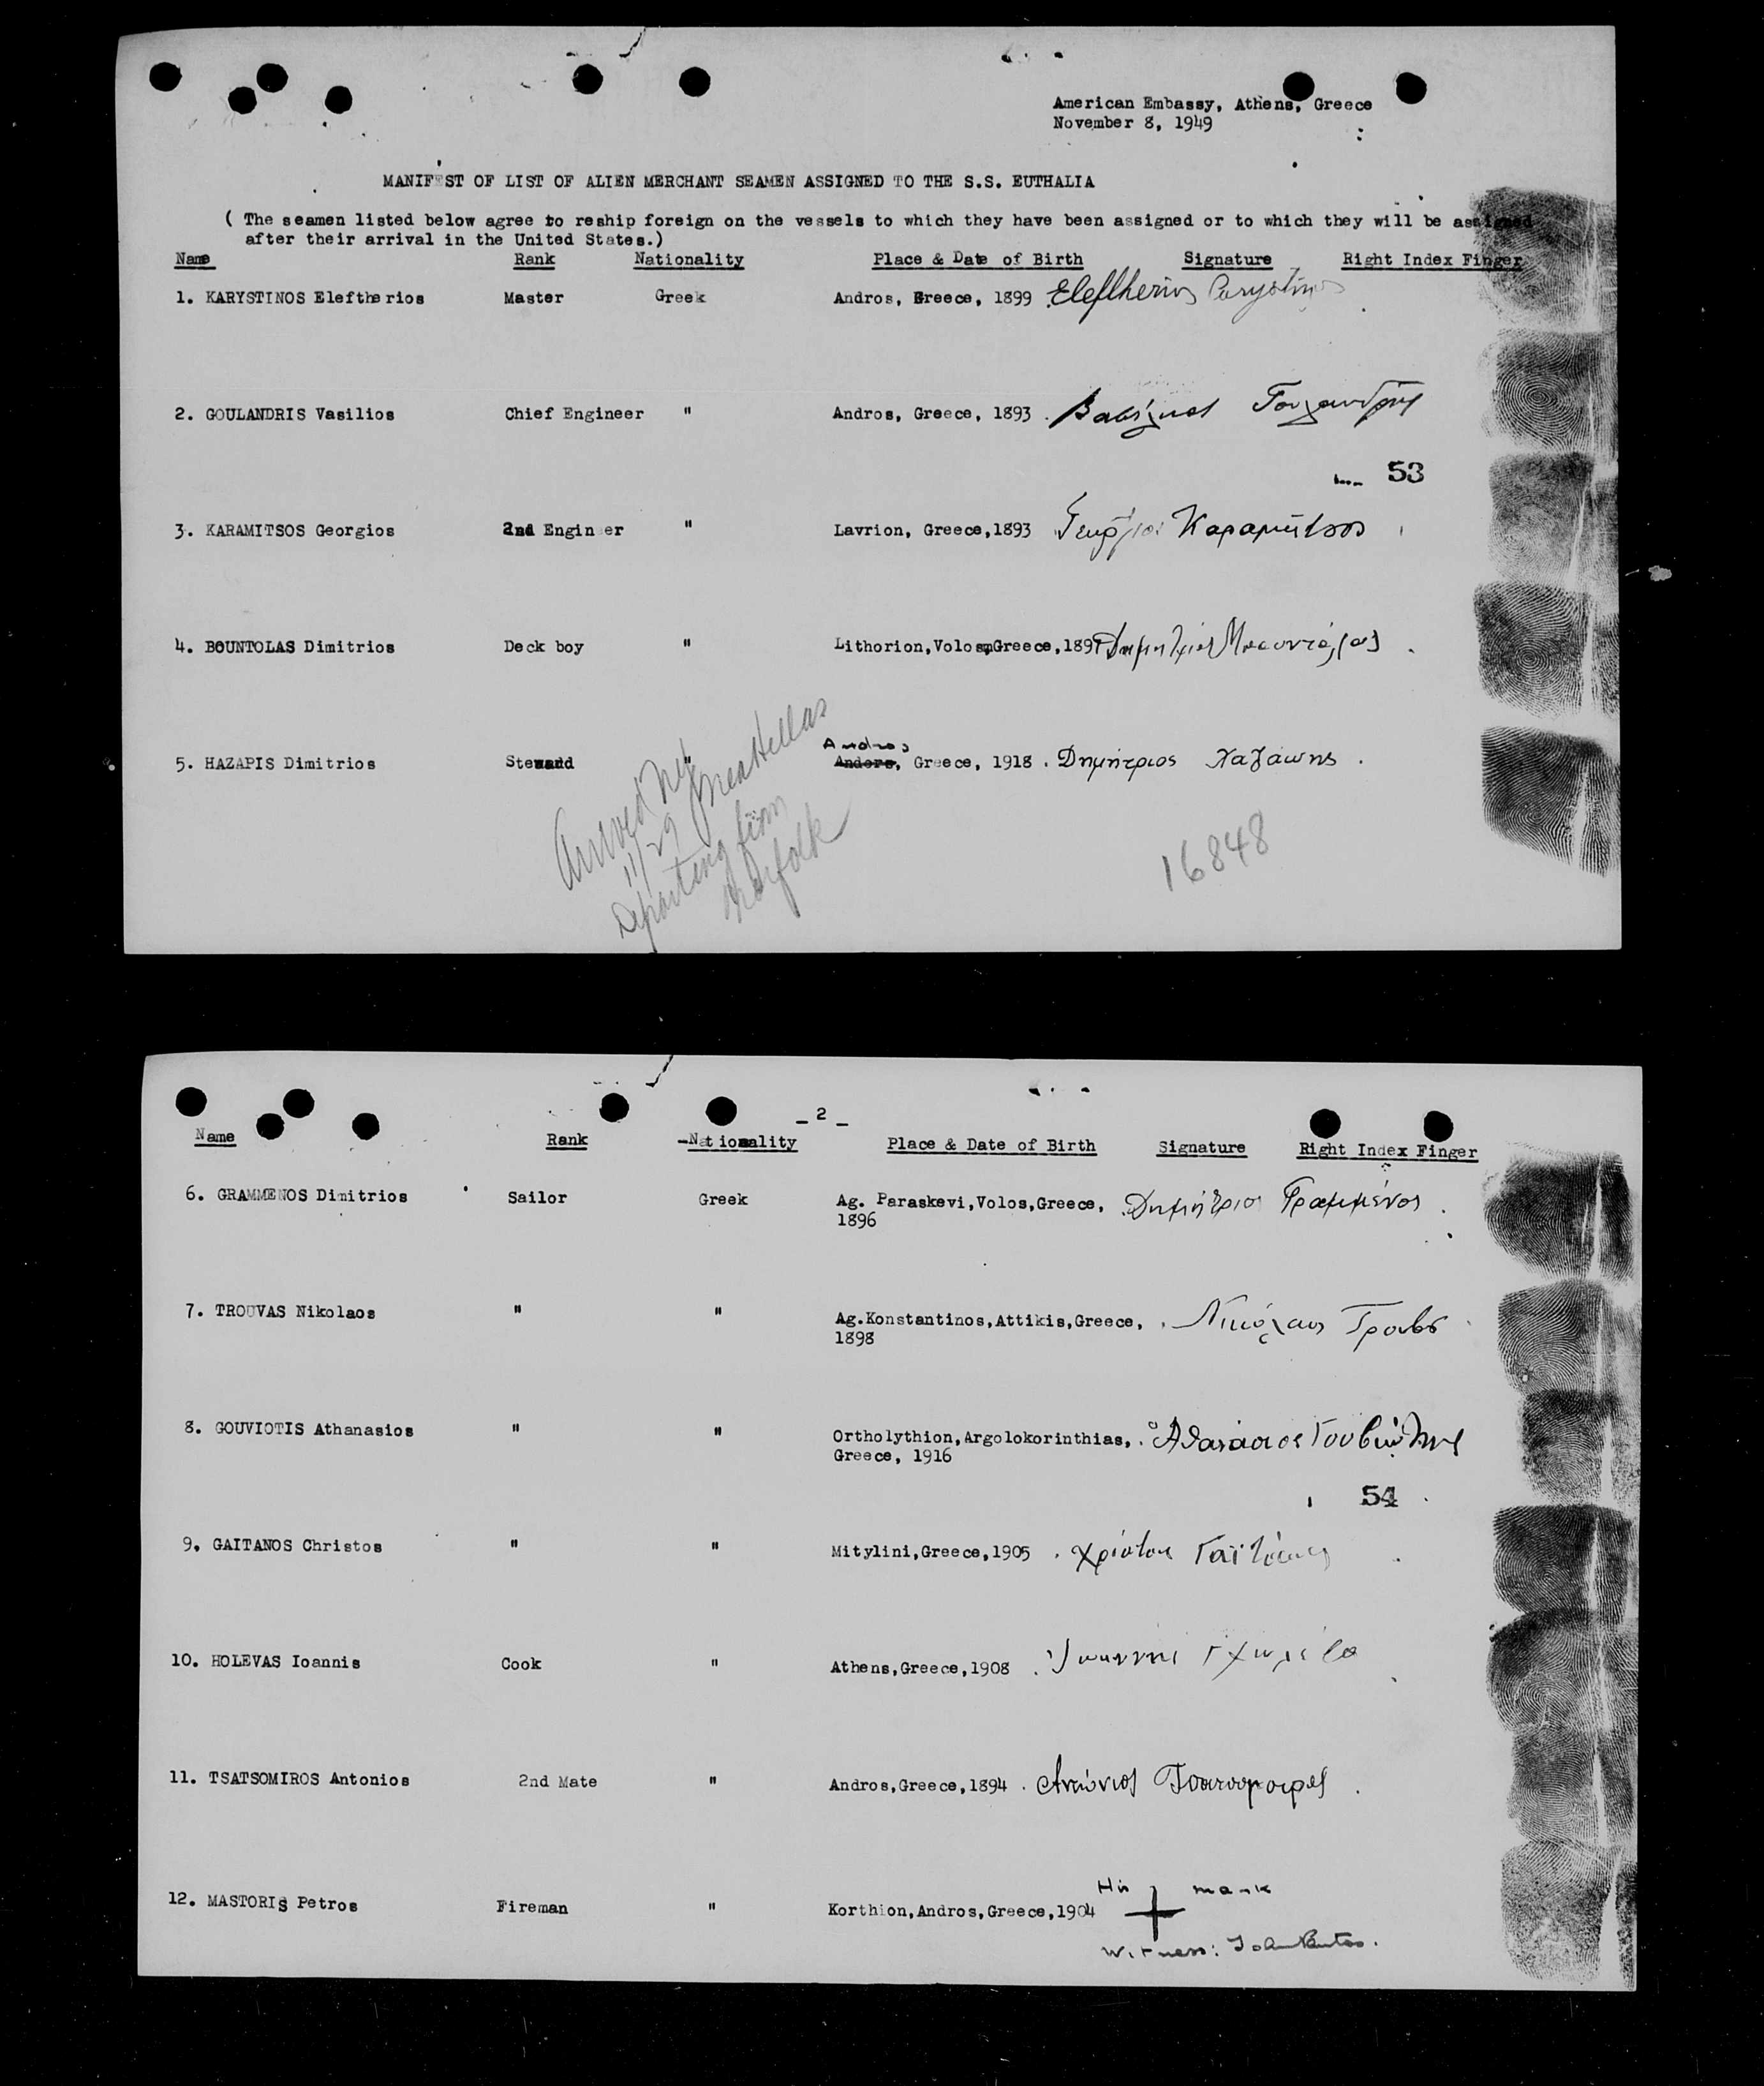 American Embassy, Athens, Greece
November 8, 1949
MANIFEST OF LIST OF ALIEN MERCHANT SEAMEN ASSIGNED TO THE S.S. EUTHALIA
( The seamen listed below agree to reship foreign on the vessels to which they have been assigned or to which they will be assigned
after their arrival in the United States.)
Name Rank Nationality Place & Date of Birth Signature Right Index Finger
1. KARYSTINOS Eleftherios Master Greek Andros, Greece, 1899 Eleftherios Carystinos
2. GOULANDRIS Vasilios Chief Engineer " Andros, Greece, 1893 Βασίλιος Γουλανδρής
53
3. KARAMITSOS Georgios 2nd Engineer " Lavrion, Greece,1893 Γεώργιος Καραμήτσος
4. BOUNTOLAS Dimitrios Deck boy " Lithorion,Volos,Greece,1897 Δημήτριος Μπουντόλας
Andros
5. HAZAPIS Dimitrios Steward " Anders, Greece, 1918 Δημήτριος Χαζάπης
Arrived Ney
11/29 Nea Hellas
Departing from
Norfolk
16848
- 2 -
Name Rank Nationality Place & Date of Birth Signature Right Index Finger
6. GRAMMENOS Dimitrios Sailor Greek Ag. Paraskevi,Volos,Greece, Δημήτριος Γραμμένος
1896
7. TROUVAS Nikolaos " " Ag.Konstantinos,Attikis,Greece, Νικόλαος Τρουβας
1898
8. GOUVIOTIS Athanasios " " Ortholythion,Argolokorinthias, Αθανάσιος Γουβιώτης
Greece, 1916
54
9. GAITANOS Christos " " Mitylini,Greece,1905 Χρίστος Γαϊτάνος
10. HOLEVAS Ioannis Cook " Athens,Greece,1908 Ιωάννης
11. TSATSOMIROS Antonios 2nd Mate " Andros,Greece,1894 Αντώνιος Τσατσομοιρος
His mark
12. MASTORIS Petros Fireman " Korthion,Andros,Greece,1904 +
Witness: John